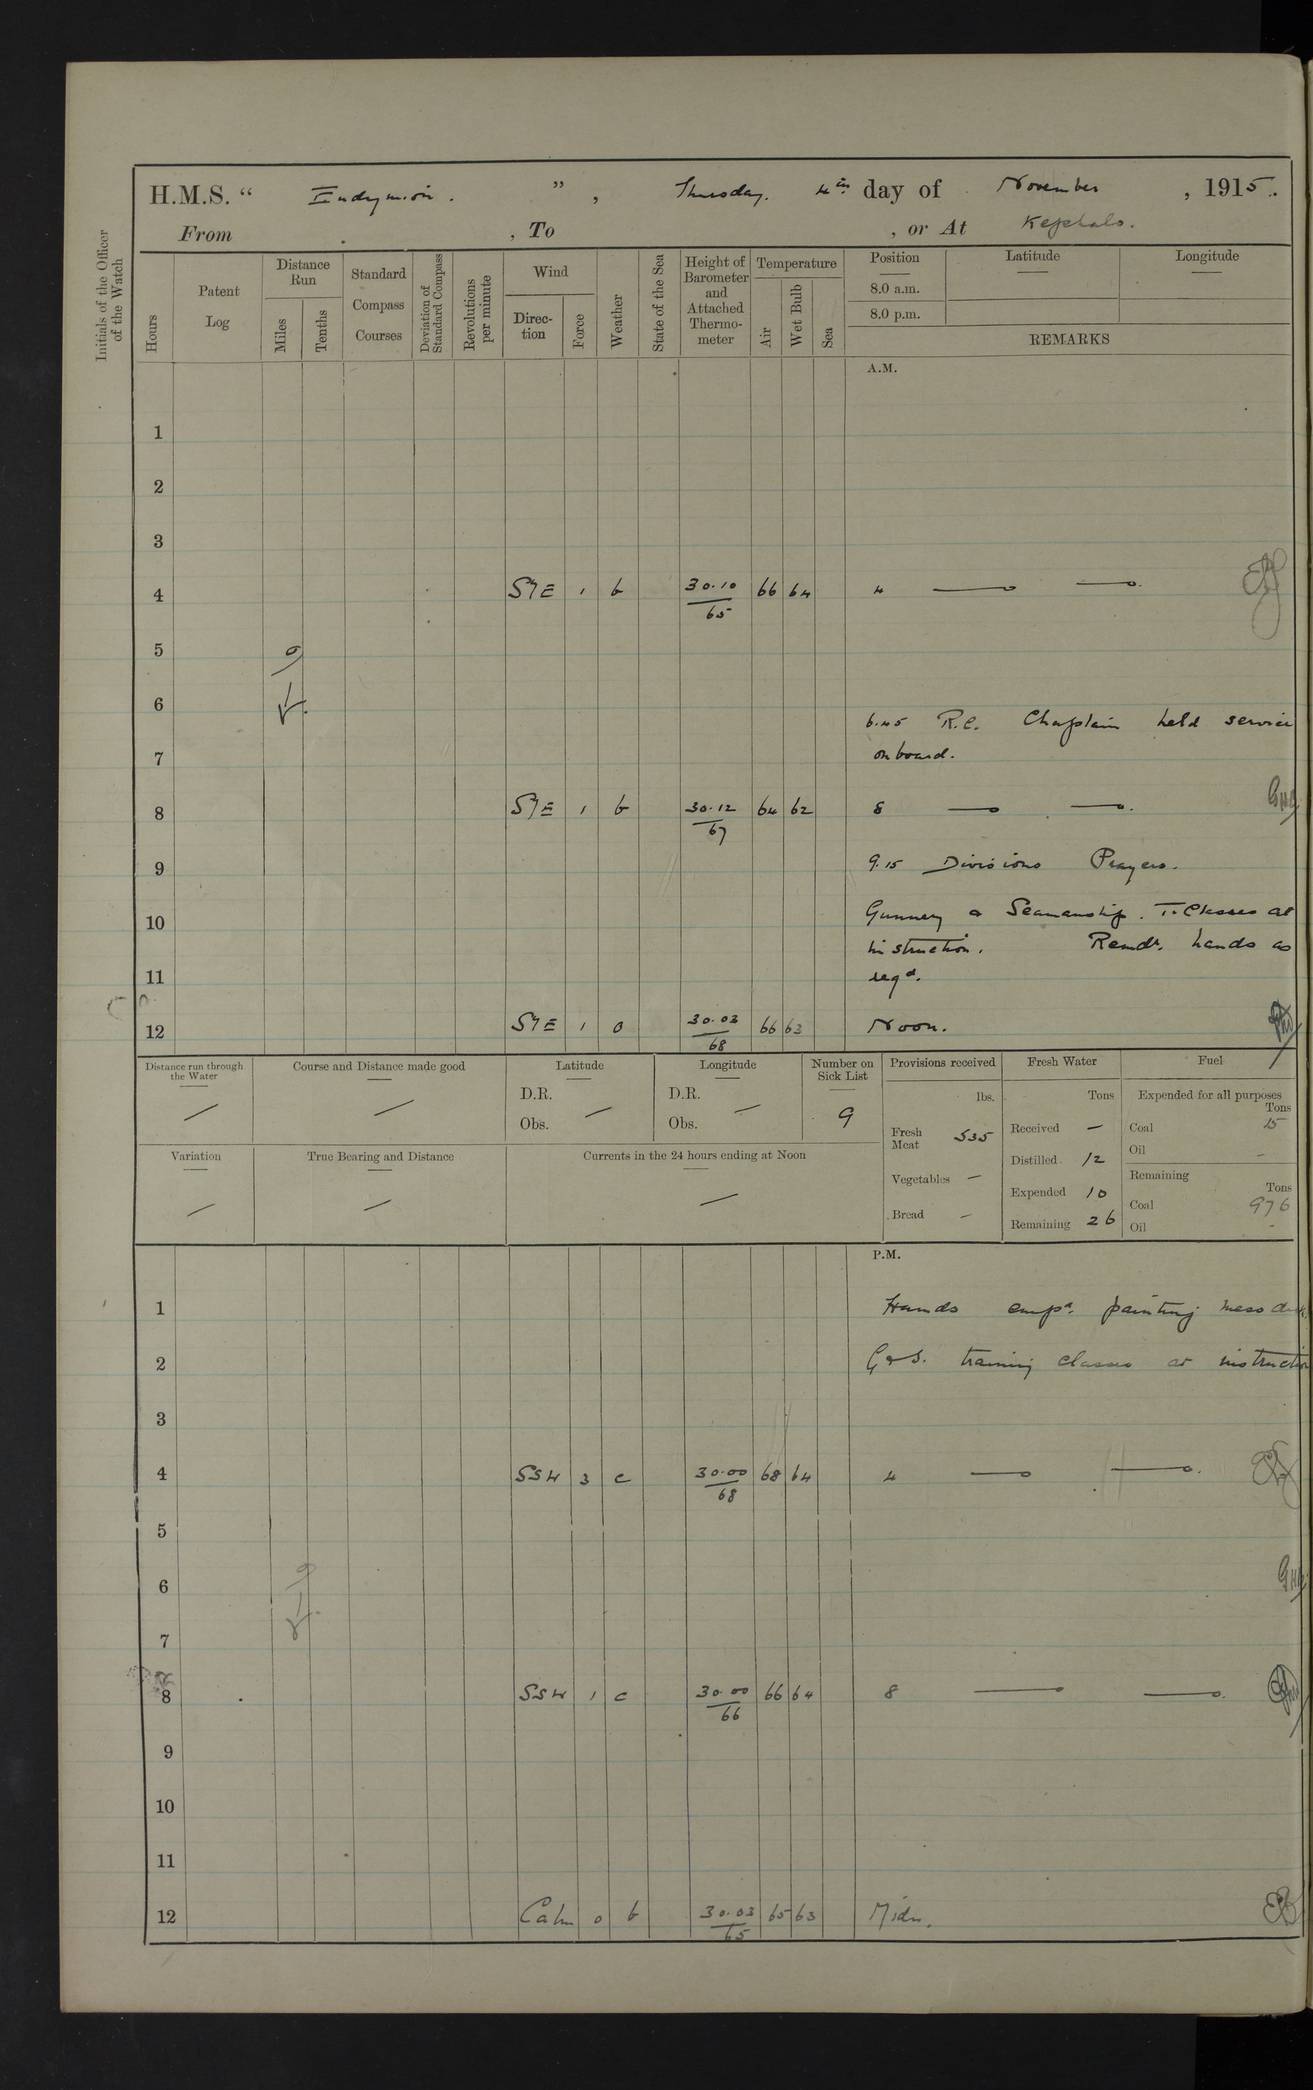 H.M.S. " Endymion. ", Thursday. 4th day of November, 1915.
From , To , or At Kephalo.
Initials of the Officer of the Watch
Hours
Patent Log
Distance Run
Miles
Tenths
Standard Compass Courses
Deviation of Standard Compass
Revolutions per minute
Wind
Direction
Force
Weather
State of the Sea
Height of Barometer and Attached Thermometer
Temperature
Air
Wet Bulb
Sea
Position
8.0 a.m.
8.0 p.m.
Latitude
Longitude
REMARKS
A.M.
1
2
3
4 SYE 1 b 30.10/65 66 64 4
5
6
6.45 R.C. Chaplain held service
7 onboard.
8 SYE 1 b 30.12/67 64 62 8
9 9.15 Divisions Prayers.
10 Gunnery & Seamanship. T. Classes at
instruction. Remdr. hands as
11 reqd.
12 SYE 1 o 30.03/68 66 63 Noon.
Distance run through the Water —
Course and Distance made good —
Latitude
D.R.
Obs. —
Longitude
D.R.
Obs. —
Number on Sick List
9
Variation —
True Bearing and Distance —
Currents in the 24 hours ending at Noon —
Provisions received
lbs.
Fresh Meat 535
Vegetables —
Bread —
Fresh Water
Tons
Received —
Distilled 12
Expended 10
Remaining 26
Fuel
Expended for all purposes
Tons
Coal 15
Oil -
Remaining
Tons
Coal 976
Oil -
P.M.
1 Hands empd. painting mess
2 G & S. training classes at instruction
3
4 SSW 3 c 30.00/68 68 64 4
5
6
7
8 SSW 1 c 30.00/66 66 64 8
9
10
11
12 Calm 0 b 30.03/65 65 63 Midn.